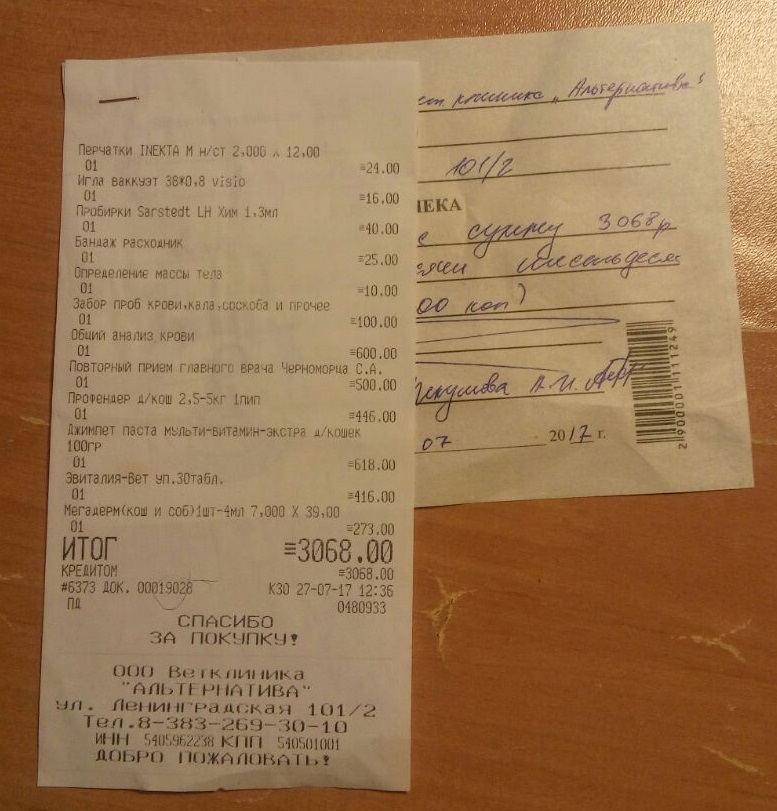 Перчатки INEKTA M н/ст 2,000 X 12,00
01 =24.00
Игла ваккуэт 38*0,8 visio
01 =16.00
Пробирки Sarstedt LH Хим 1,3мл
01 =40.00
Бандаж расходник
01 =25.00
Определение массы тела
01 =10.00
Забор проб крови,кала,соскоба и прочее
01 =100.00
Общий анализ крови
01 =600.00
Повторный прием главного врача Черноморца С.А.
01 =500.00
Профендер д/кош 2,5-5кг 1пип
01 =446.00
Джимпет паста мульти-витамин-экстра д/кошек
100гр
01 =618.00
Эвиталия-Вет уп.30табл.
01 =416.00
Мегадерм(кош и соб)1шт-4мл 7,000 X 39,00
01 =273.00
ИТОГ =3068.00
КРЕДИТОМ =3068.00
#6373 ДОК. 00019028 КЗО 27-07-17 12:36
ПД 0480933
СПАСИБО
ЗА ПОКУПКУ!
ООО Ветклиника
"АЛЬТЕРНАТИВА"
ул. Ленинградская 101/2
Тел.8-383-269-30-10
ИНН 5405962238 КПП 540501001
ДОБРО ПОЖАЛОВАТЬ!
клиника „Альтернатива"
101/2
ЕКА
сумму 3068р
00 коп)
А.И.
07 2017 г.
2900001111249